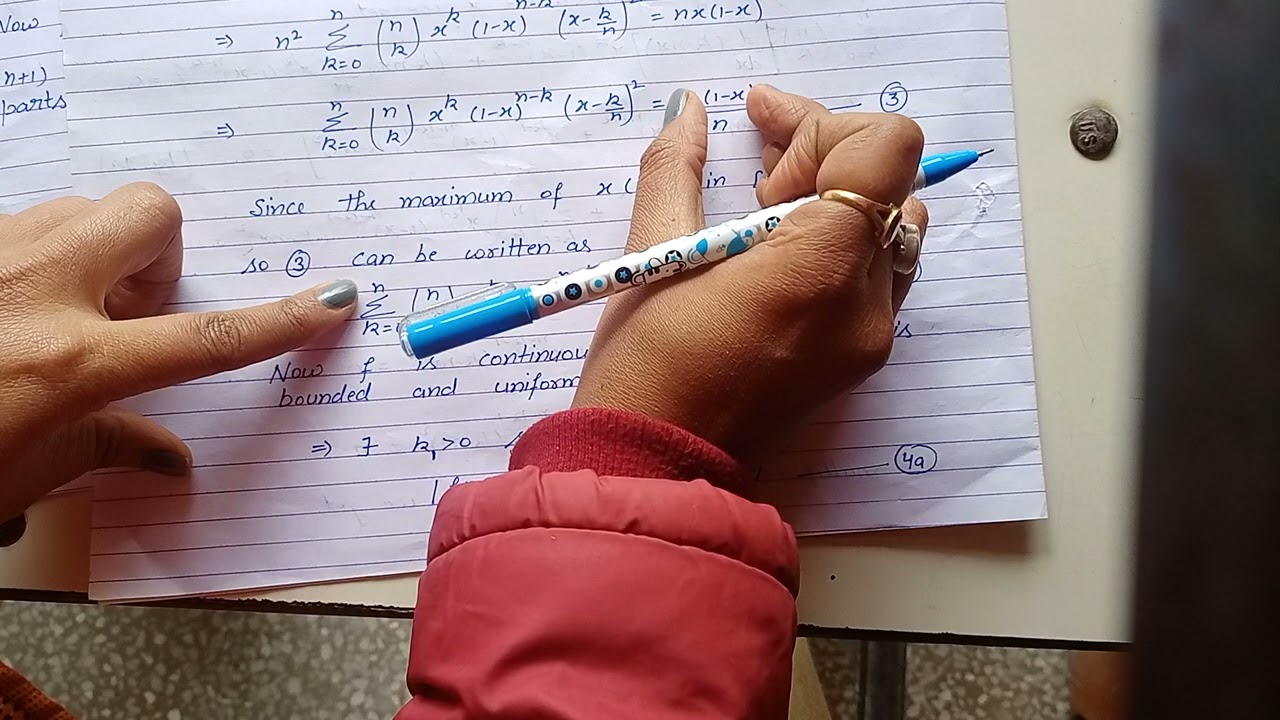 Now
n+1)
parts
⇒ n² Σ_{k=0}^{n} (n k) x^k (1-x)^{n-k} (x - k/n)² = nx(1-x)
⇒ Σ_{k=0}^{n} (n k) x^k (1-x)^{n-k} (x - k/n)² = (1-x) / n ③
Since the maximum of x ( in
so ③ can be written as
Σ^{n} (n
Now f is continuou is
bounded and uniform
⇒ ∃ k₁>0
4a